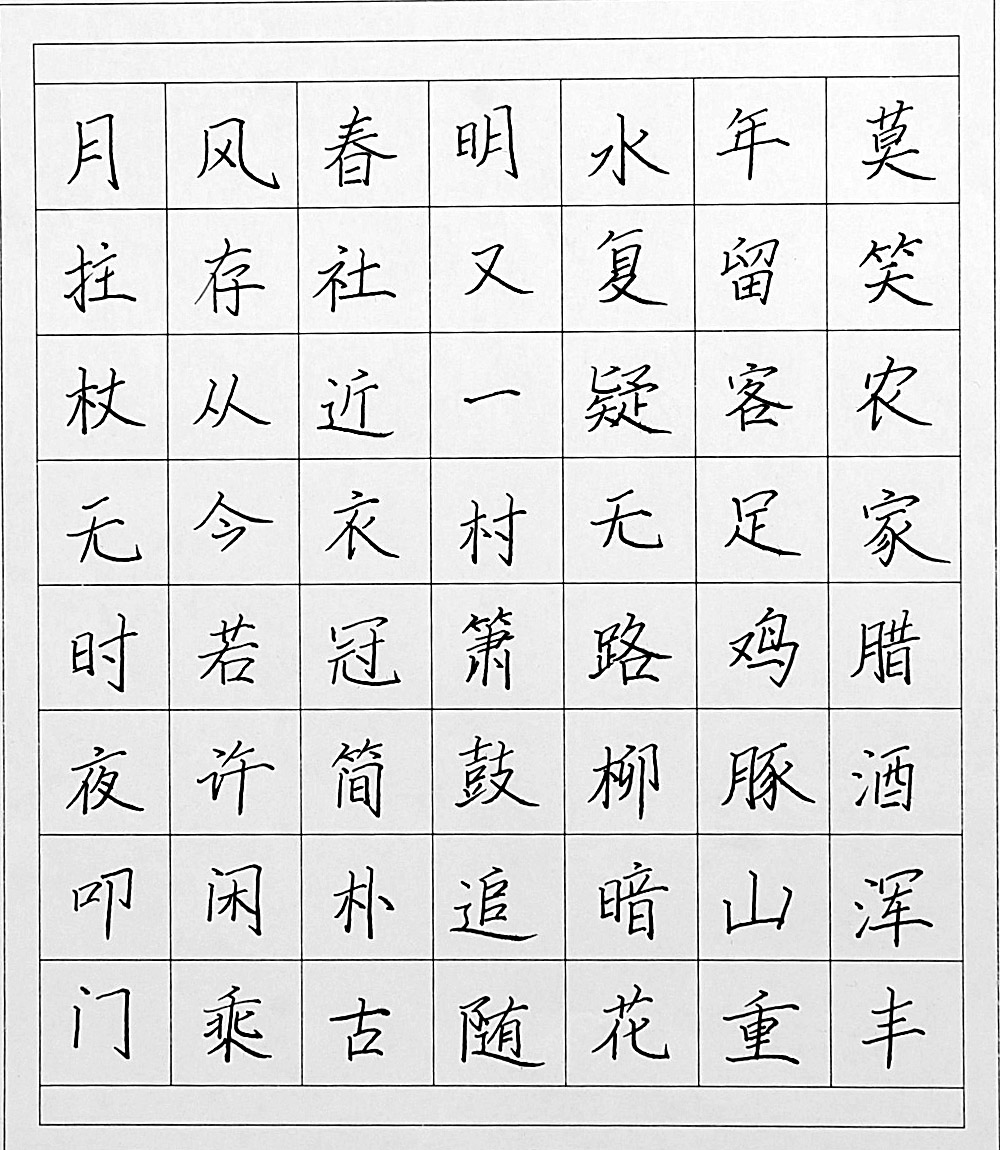 莫笑农家腊酒浑丰
年留客足鸡豚山重
水复疑无路柳暗花
明又一村箫鼓追随
春社近衣冠简朴古
风存从今若许闲乘
月拄杖无时夜叩门